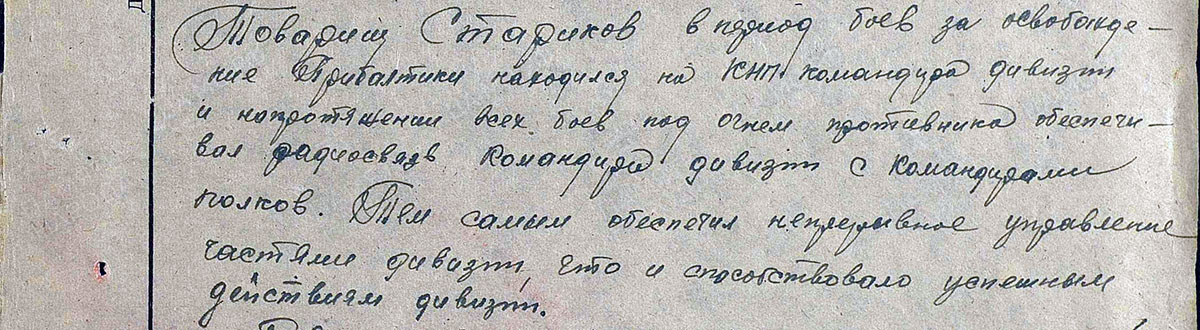 Товарищ Стариков в период боев за освобожде-
ние Прибалтики находился на КНП командира дивизии
и напротяжении всех боев под огнем противника обеспечи-
вал радиосвязь командира дивизии с командирами
полков. Тем самым обеспечил непрерывное управление
частями дивизии, что и способствовало успешным
действиям дивизии.